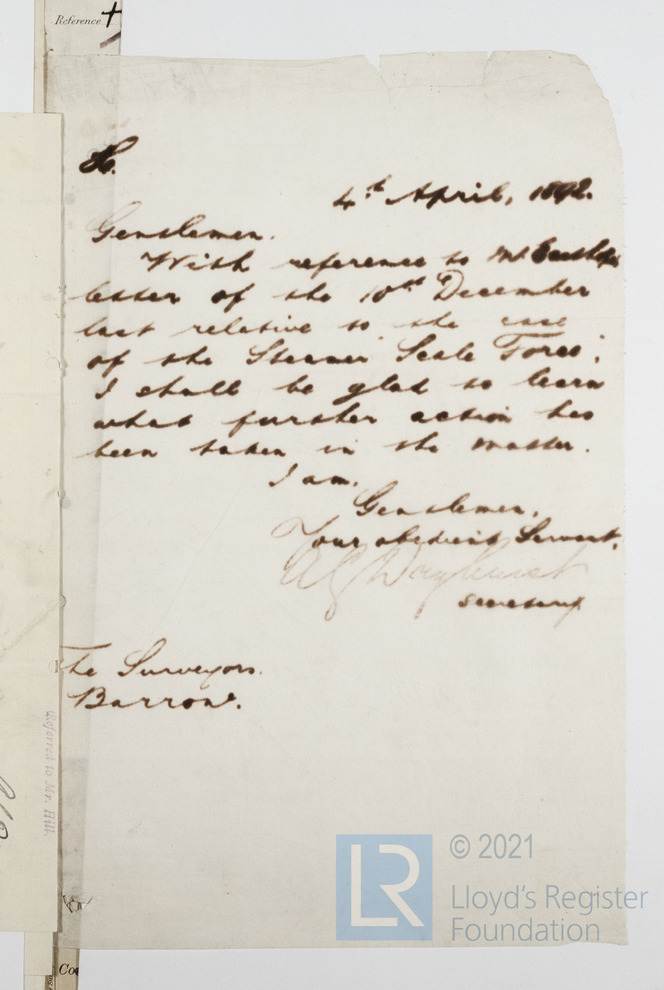 Reference
H.
4th April, 1892.
Gentlemen.
With reference to Mr.
letter of the 10th December
last relative to the case
of the Steamer Scale Force;
I shall be glad to learn
what further action has
been taken in the matter.
I am,
Gentlemen,
Your obedient Servant,
Secretary
The Surveyors.
Barrow.
Referred to Mr. Hill.
LR
© 2021
Lloyd's Register
Foundation